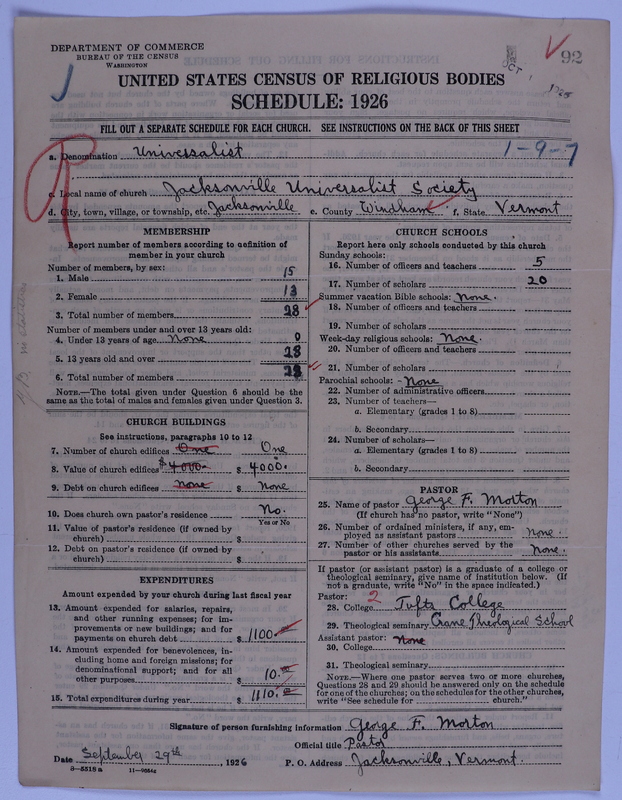 DEPARTMENT OF COMMERCE
BUREAU OF THE CENSUS
WASHINGTON
92
OCT
UNITED STATES CENSUS OF RELIGIOUS BODIES
SCHEDULE: 1926
FILL OUT A SEPARATE SCHEDULE FOR EACH CHURCH. SEE INSTRUCTIONS ON THE BACK OF THIS SHEET
1-9-7
a. Denomination Universalist
c. Local name of church Jacksonville Universalist Society
d. City, town, village, or township, etc. Jacksonville e. County Windham f. State Vermont
MEMBERSHIP
Report number of members according to definition of
member in your church
Number of members, by sex:
1. Male 15
2. Female 13
3. Total number of members 28
Number of members under and over 13 years old:
4. Under 13 years of age None 0
5. 13 years old and over 28
6. Total number of members 28
NOTE.—The total given under Question 6 should be
same as the total of males and females given under Question 3.
CHURCH BUILDINGS
See instructions, paragraphs 10 to 12
7. Number of church edifices One One
8. Value of church edifices $4000. $ 4000.
9. Debt on church edifices None $ None
10. Does church own pastor's residence No.
Yes or No
11. Value of pastor's residence (if owned by
church) $
12. Debt on pastor's residence (if owned by
church) $
EXPENDITURES
Amount expended by your church during last fiscal year
13. Amount expended for salaries, repairs,
and other running expenses; for im-
provements or new buildings; and for
payments on church debt $ 1100.
14. Amount expended for benevolences, in-
cluding home and foreign missions; for
denominational support; and for all
other purposes $ 10.
15. Total expenditures during year $ 1110.
CHURCH SCHOOLS
Report here only schools conducted by this church
Sunday schools:
16. Number of officers and teachers 5
17. Number of scholars 20
Summer vacation Bible schools: None.
18. Number of officers and teachers
19. Number of scholars
Week-day religious schools: None.
20. Number of officers and teachers
21. Number of scholars
Parochial schools: - None
22. Number of administrative officers
23. Number of teachers—
a. Elementary (grades 1 to 8)
b. Secondary
24. Number of scholars—
a. Elementary (grades 1 to 8)
b. Secondary
PASTOR
25. Name of pastor George F. Morton
(If church has no pastor, write "None")
26. Number of ordained ministers, if any, em-
ployed as assistant pastors None.
27. Number of other churches served by the
pastor or his assistants None.
If pastor (or assistant pastor) is a graduate of a college or
theological seminary, give name of institution below. (If
not a graduate, write "No" in the space indicated.)
Pastor: 2
28. College Tufts College
29. Theological seminary Crane Theological School
Assistant pastor: None
30. College
31. Theological seminary
NOTE.—Where one pastor serves two or more churches,
Questions 28 and 29 should be answered only on the schedule
for one of the churches; on the schedules for the other churches,
write "See schedule for church."
Signature of person furnishing information George F. Morton
Official title Pastor
Date September 29th, 1926 P. O. Address Jacksonville, Vermont.
8-5518 a 11-9064